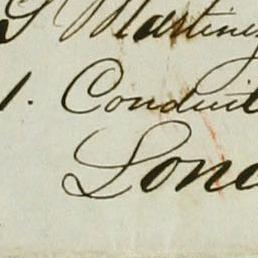 S Martinez
1. Conduit
Lond